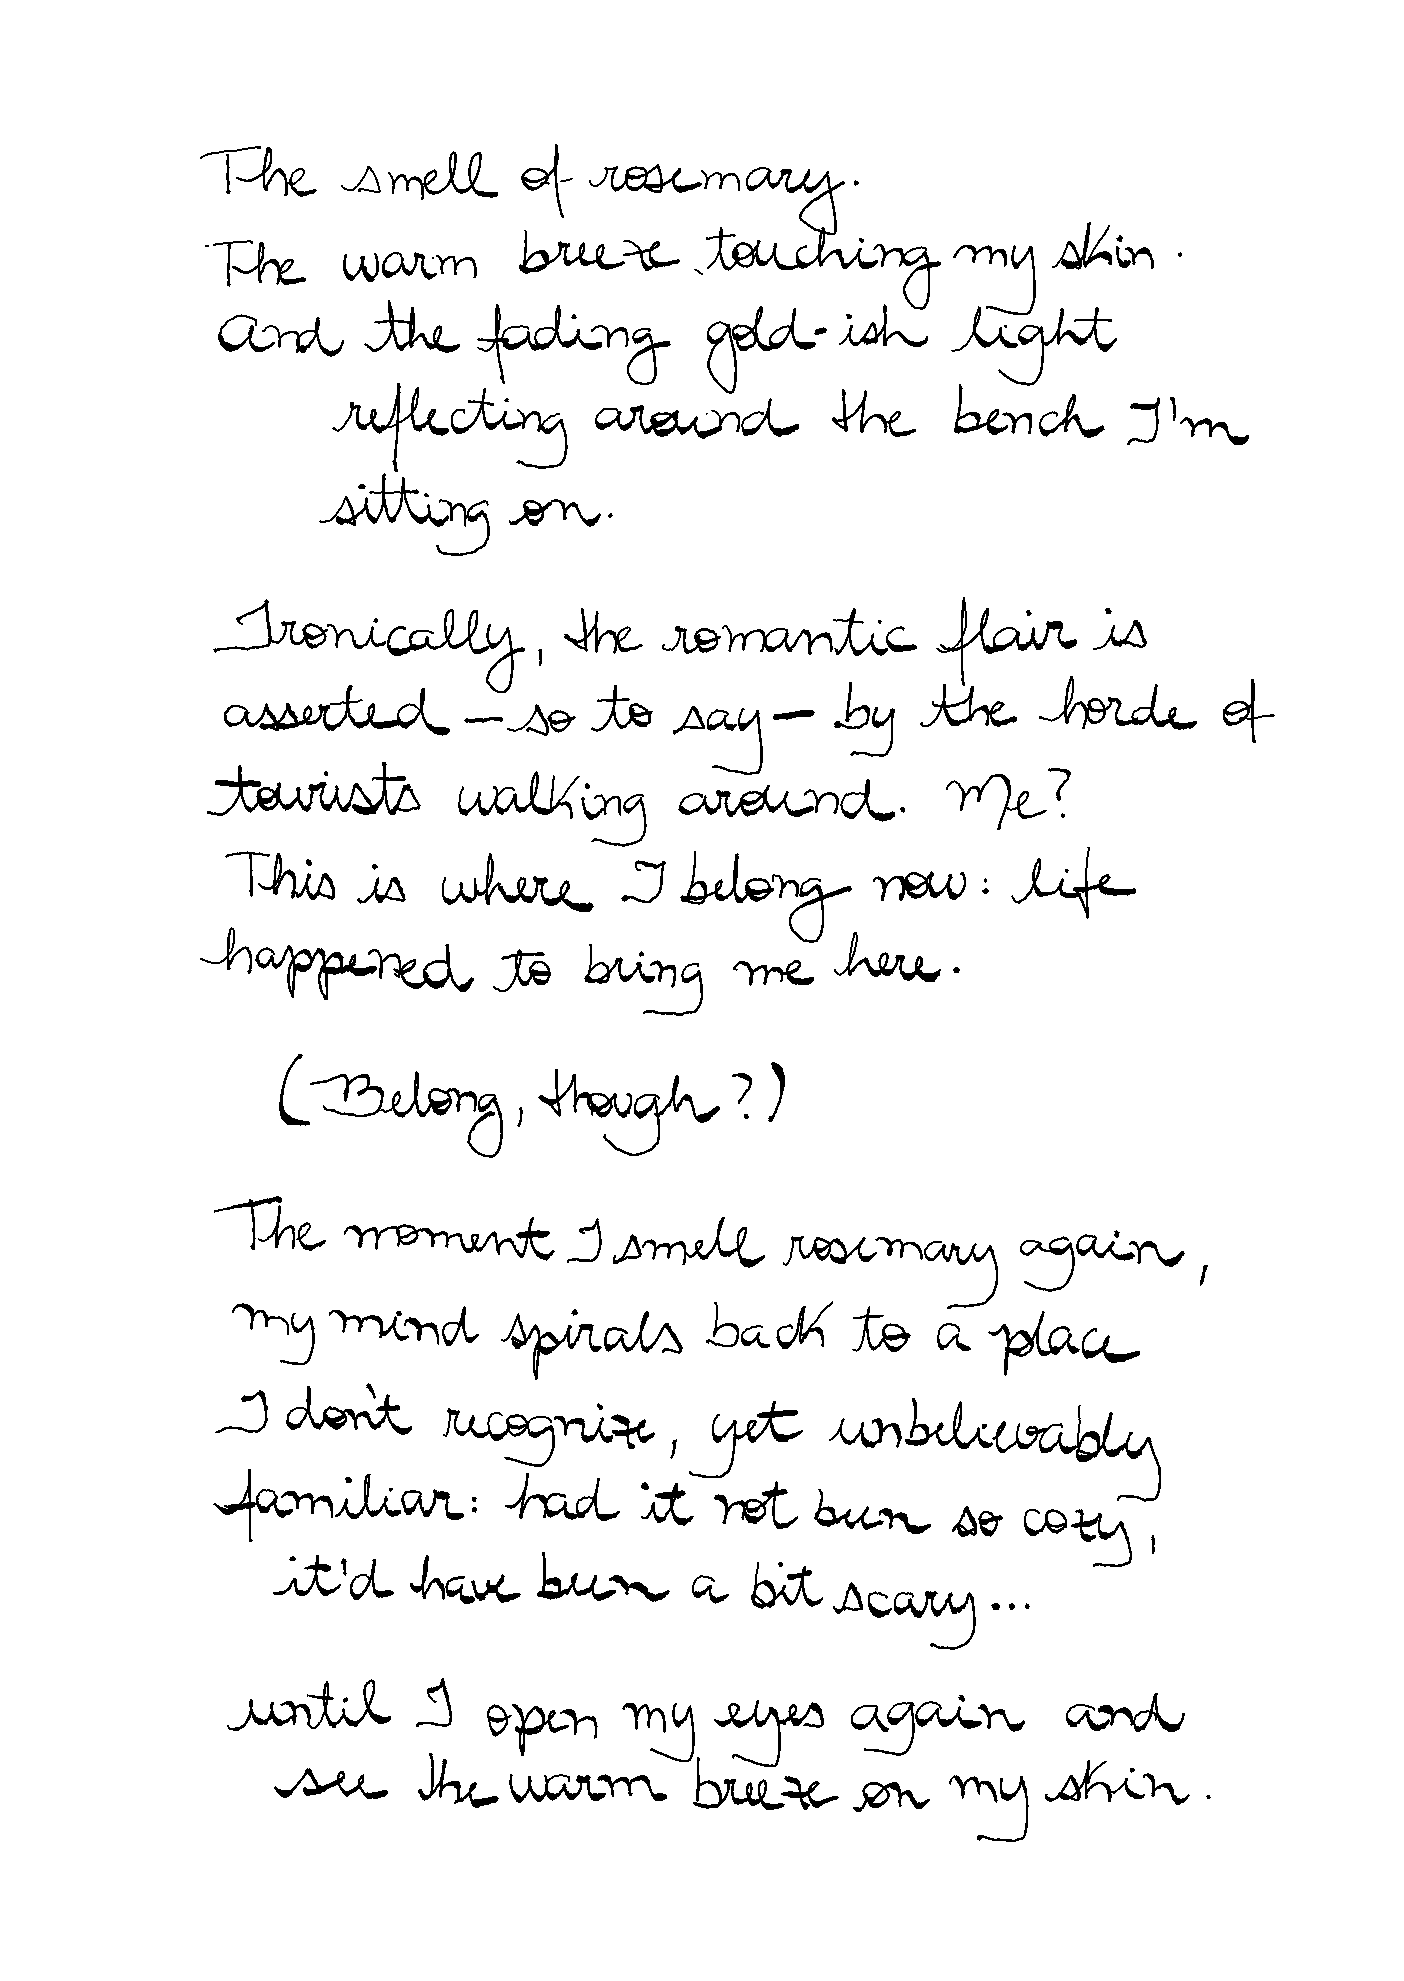 The smell of rosemary.
The warm breeze touching my skin.
And the fading gold-ish light
reflecting around the bench I'm
sitting on.
Ironically, the romantic flair is
asserted – so to say – by the horde of
tourists walking around. Me?
This is where I belong now: life
happened to bring me here.
(Belong, though?)
The moment I smell rosemary again,
my mind spirals back to a place
I don't recognize, yet unbelievably
familiar: had it not been so cozy,
it'd have been a bit scary...
until I open my eyes again and
see the warm breeze on my skin.